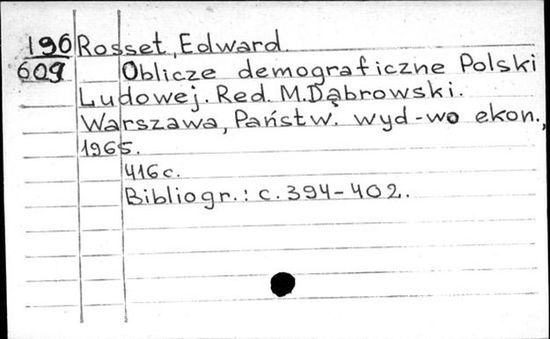 196 Rosset, Edward.
609 Oblicze demograficzne Polski
Ludowej. Red. M.Dąbrowski.
Warszawa, Państw. wyd-wo ekon.,
1965.
416 c.
Bibliogr.: c. 394-402.